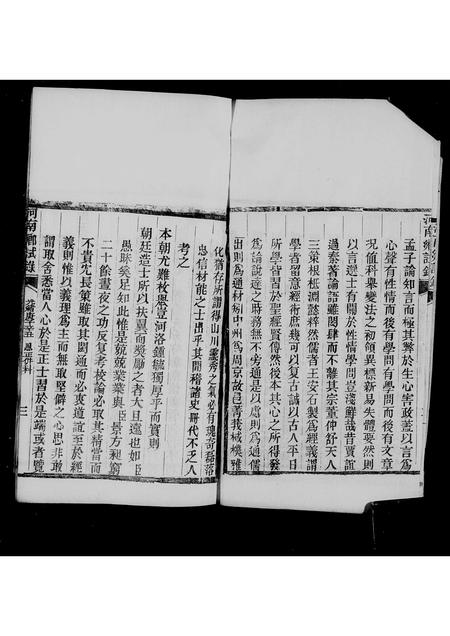 孟子論知言而極其弊於生心害政蓋以言為
心聲有性情而後有學問有學問而後有文章
況值科舉變法之初領異標新易失體要然則
以言選士有關於性情學問豈淺鮮哉昔賈誼
過秦著論語雖閎肆而不駭其宗董仲舒天人
三策根柢淵懿粹然儒者王安石製為經義謂
學者留意經術庶幾可以復古誠以古人平日
學習皆學習於聖經賢傳然後本其心之所得發
為論說達之時務無不旁通是以處則為通儒
出則為通材豫中州為周京故
化猶存所謂得山川靈秀之氣必有瑰奇磊落
忠信材能之士出乎其間稽諸史冊代不乏人
考之
本朝尤難枚舉豈河洛鍾毓獨厚乎而實則
朝廷造士所以扶翼而獎勵之者大且遠也如臣
愚昧奚足知此惟是兢兢業業與臣景方昶窮
二十餘晝夜之功反复考校論必取其精當而
不貴冗長策雖取其閎通而必衷道誼至於經
義則惟以義理為主而無取堅僻之心思非敢
謂取舍悉當人心於是正士習於是端或者覽
河南鄉試錄
光緒
恩正併科
三